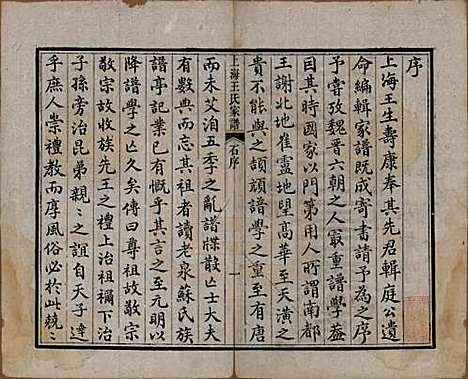 序
上海王生壽康奉其先君輯庭公遺
命編輯家譜既成寄書請予為之序
予嘗攷魏晉六朝之人最重譜學蓋
其時國家以門第用人所謂南都
王謝北地崔盧地望高華至天潢之
貴不能與之頡頏譜學之重至有唐
而未艾洎五季之亂譜牒散亾士大夫
有數典而忘其祖者讀老泉蘇氏族
譜亭記業已有慨乎其言之至元明以
降譜學之亾久矣傳曰尊祖故敬宗
敬宗故收族先王之禮上治祖禰下治
子孫旁治昆弟親親之誼自天子達
乎庶人崇禮教而厚風俗必於此兢兢
上海王氏家譜
石序
一